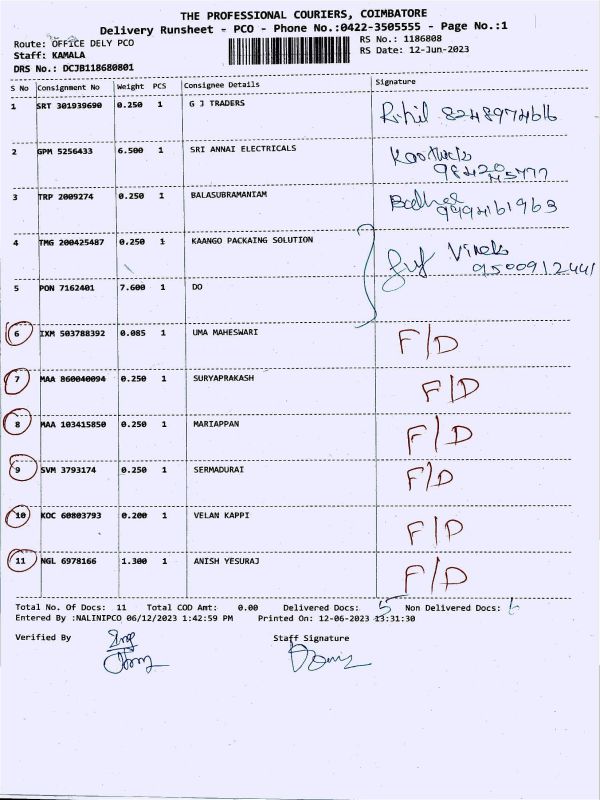 THE PROFESSIONAL COURIERS, COIMBATORE
Delivery Runsheet - PCO - Phone No.:0422-3505555 - Page No.:1
Route: OFFICE DELY PCO
RS No.: 1186808
Staff: KAMALA
RS Date: 12-Jun-2023
DRS No.: DCJB118680801
S No Consignment No Weight PCS Consignee Details Signature
1 SRT 301939690 0.250 1 G J TRADERS 8248974616
2 GPM 5256433 6.500 1 SRI ANNAI ELECTRICALS
3 TRP 2009274 0.250 1 BALASUBRAMANIAM 9994161963
4 TMG 200425487 0.250 1 KAANGO PACKAING SOLUTION Vivek
9500912441
5 PON 7162401 7.600 1 DO
6 IXM 503788392 0.085 1 UMA MAHESWARI F/D
7 MAA 860040094 0.250 1 SURYAPRAKASH F/D
8 MAA 103415850 0.250 1 MARIAPPAN F/D
9 SVM 3793174 0.250 1 SERMADURAI F/D
10 KOC 60803793 0.200 1 VELAN KAPPI F/D
11 NGL 6978166 1.300 1 ANISH YESURAJ F/D
Total No. Of Docs: 11 Total COD Amt: 0.00 Delivered Docs: 5 Non Delivered Docs: 6
Entered By :NALINIPCO 06/12/2023 1:42:59 PM Printed On: 12-06-2023 13:31:30
Verified By Staff Signature